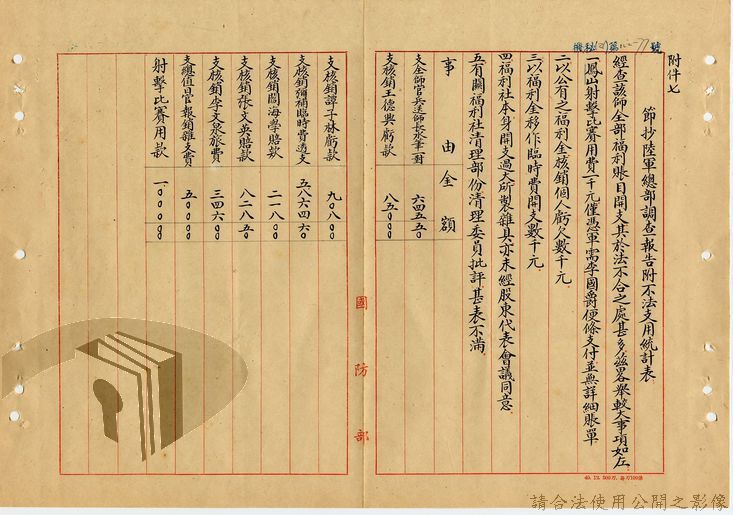 附件七
節抄陸軍總部調查報告附不法支用統計表
經查該師全部福利賬目開支其於法不合之處甚多茲畧舉較大事項如左
一鳳山射擊比賽用費一千元僅憑軍需李國爵便條支付並無詳細賬單
二以公有之福利金核銷個人虧欠數千元
三以福利金移作臨時費開支數千元
四福利社本身開支過大所製雜具亦未經股東代表會議同意
五有關福利社清理部份清理委員批評甚表不滿
事由 金額
支全師官兵送師長水筆一對 六四五五〇
支核銷王德興虧款 八五〇〇〇
國防部
支核銷譚子林虧款 九〇八〇〇
支核銷彌補臨時費透支 五八六四六〇
支核銷閻海學賠款 二一八〇
支核銷張文英賠款 八二八五〇
支核銷李文泉旅費 三四六〇〇
支總值日官報銷雜支費 五〇〇〇
射擊比賽用款 一〇〇〇〇〇
請合法使用公開之影像